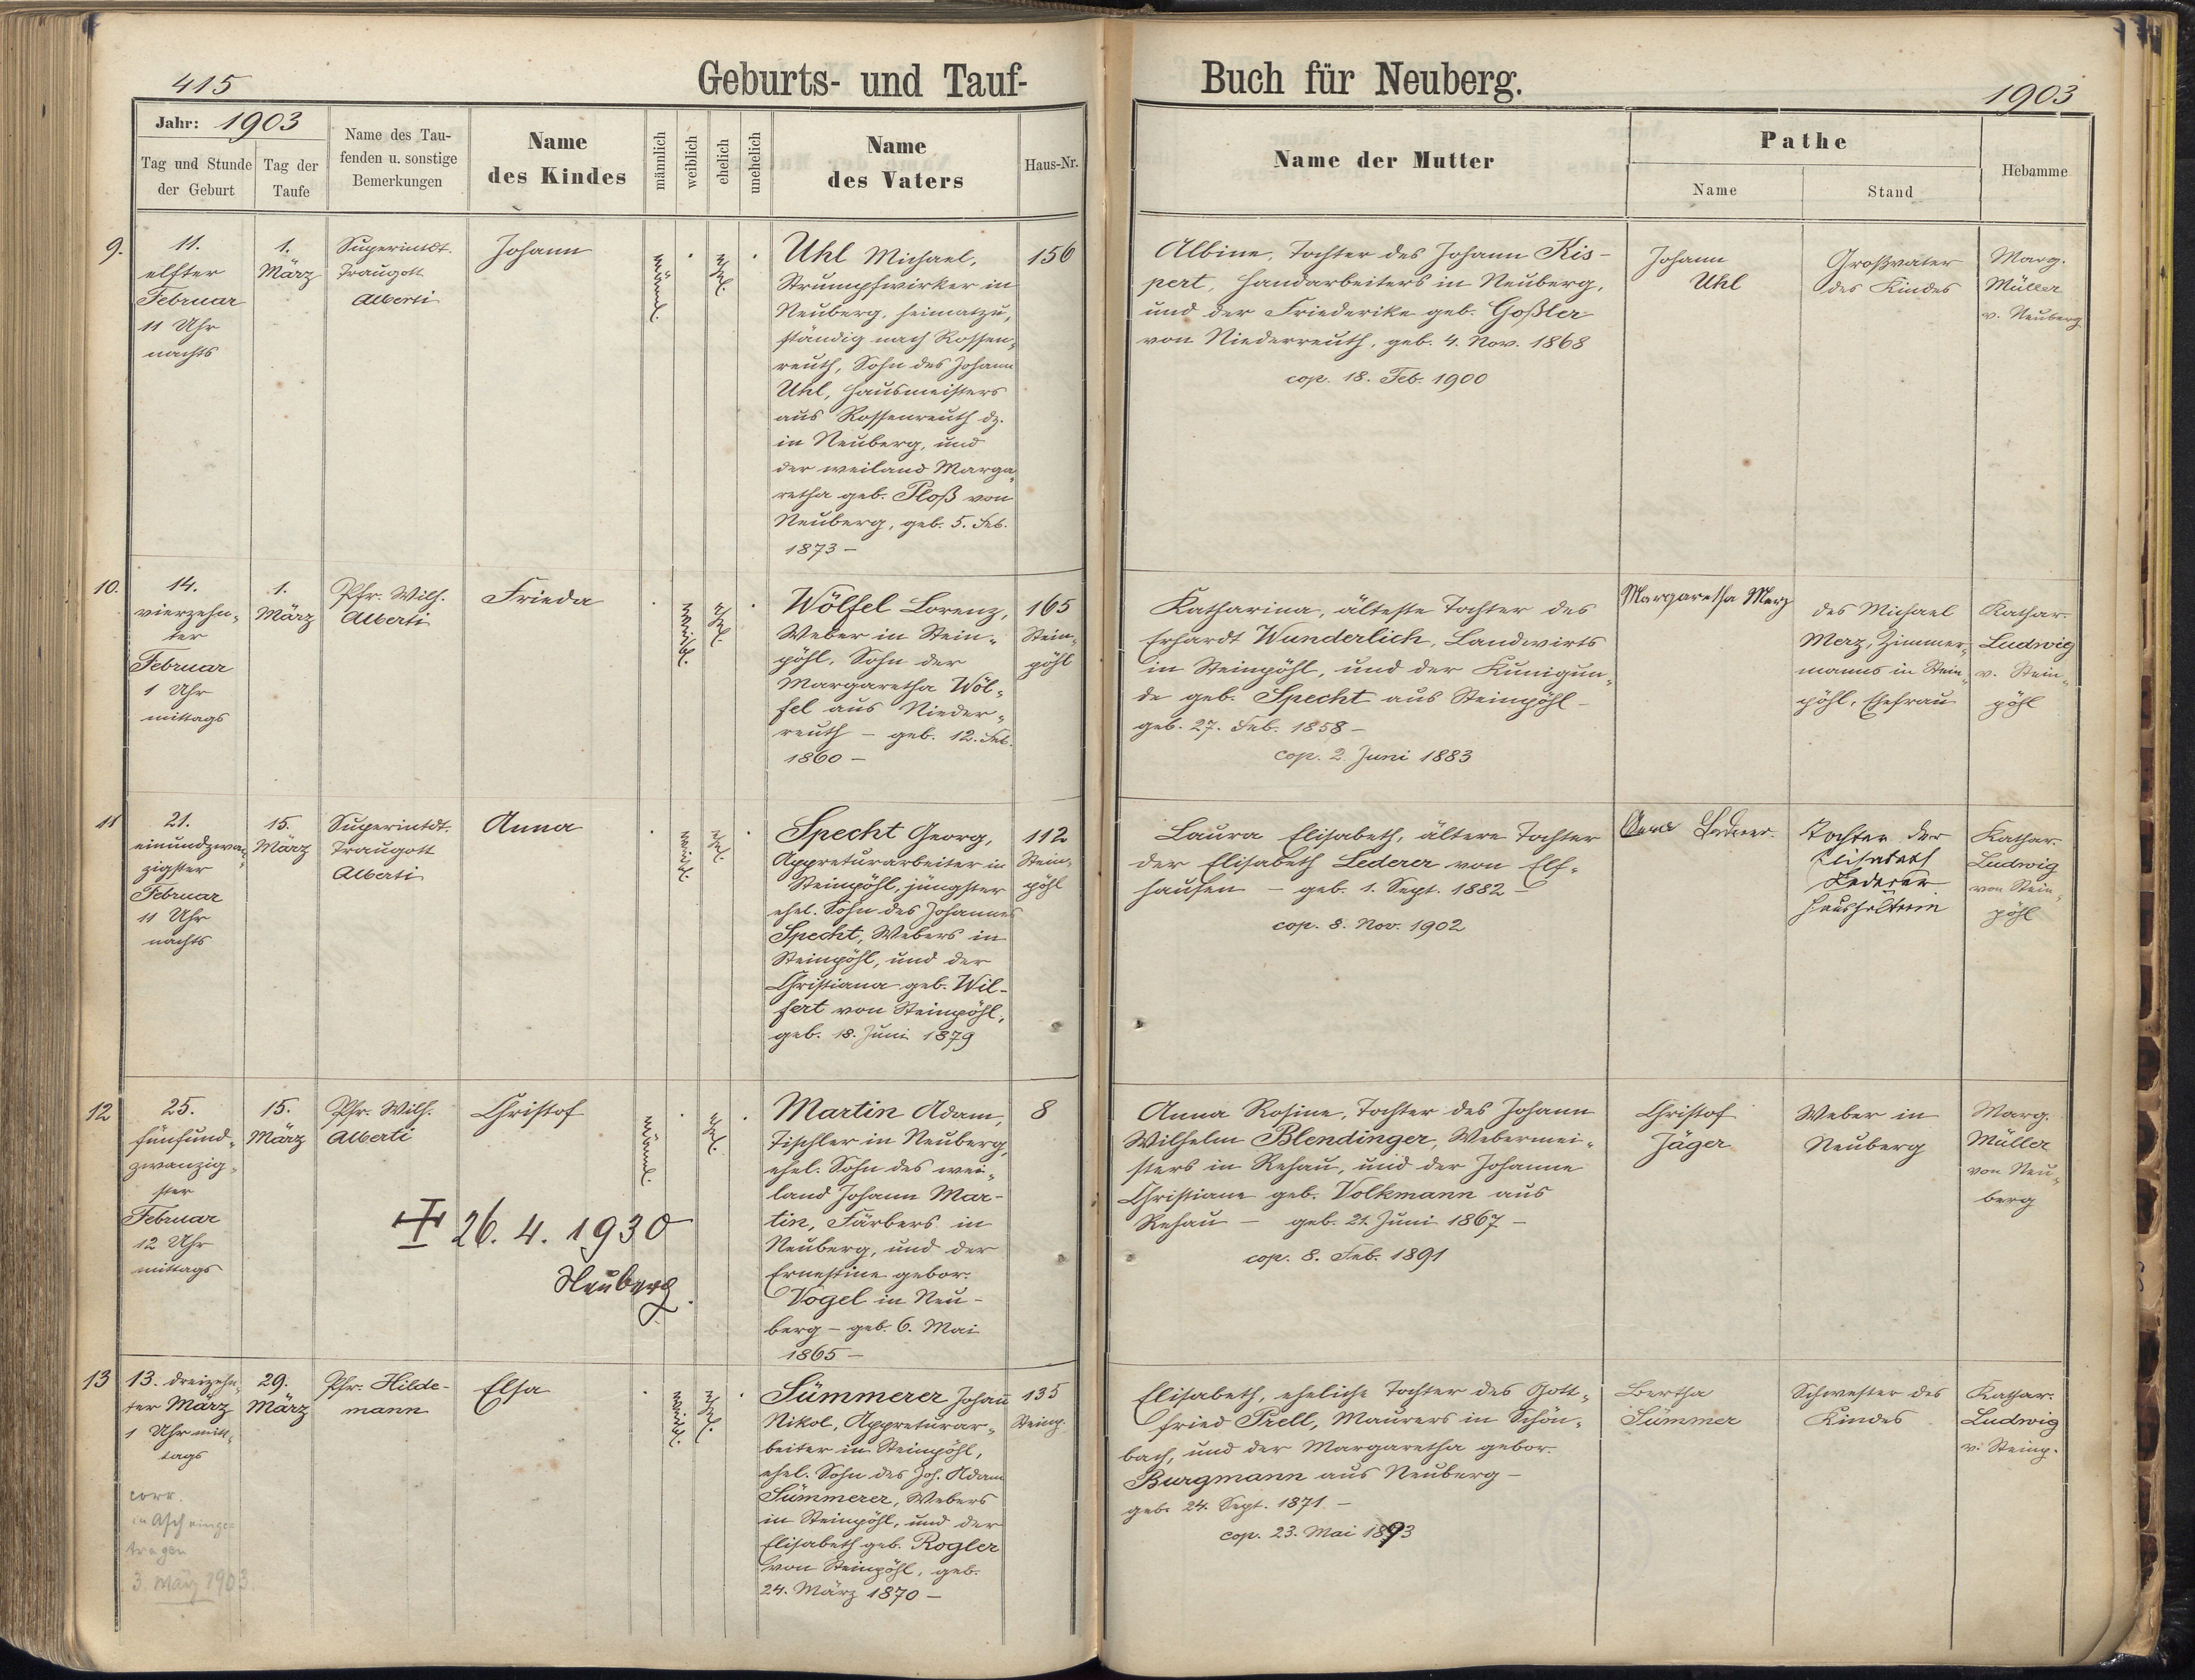 415
Geburts- und Tauf-
Buch für Neuberg.
1903
Jahr: 1903
Tag und Stunde
der Geburt
Tag der
Taufe
Name des Tau-
fenden u. sonstige
Bemerkungen
Name
des Kindes
männlich
weiblich
ehelich
unehelich
Name
des Vaters
Haus-Nr.
Name der Mutter
Pathe
Name
Stand
Hebamme
9.
11.
elfter
Februar
11 Uhr
nachts
1.
März
Superintdt.
Traugott
Alberti
Johann
männl.
ehel.
Uhl Michael,
Strumpfwirker in
Neuberg, heimatzu-
ständig nach Rossen-
reuth, Sohn des Johann
Uhl, Hausmeisters
aus Rossenreuth dz.
in Neuberg, und
der weiland Marga-
retha geb. Ploß von
Neuberg, geb. 5. Feb.
1873 –
156
Albine, Tochter des Johann Kis-
pert, Handarbeiters in Neuberg,
und der Friederike geb. Goßler
von Niederreuth, geb. 4. Nov. 1868
cop. 18. Feb. 1900
Johann
Uhl
Großvater
des Kindes
Marg.
Müller
v. Neuberg
10.
14.
vierzehn-
ter
Februar
1 Uhr
mittags
1.
März
Pfr. Wilh.
Alberti
Frieda
weibl.
ehel.
Wölfel Lorenz,
Weber in Stein-
pöhl, Sohn der
Margaretha Wöl-
fel aus Nieder-
reuth – geb. 12. Feb.
1860 –
165
Stein-
pöhl
Katharina, älteste Tochter des
Erhardt Wunderlich, Landwirts
in Steinpöhl, und der Kunigun-
de geb. Specht aus Steinpöhl –
geb. 27. Feb. 1858 –
cop. 2. Juni 1883
Margaretha Merz
des Michael
Merz, Zimmer-
manns in Stein-
pöhl, Ehefrau
Kathar.
Ludwig
v. Stein-
pöhl
11
21.
einundzwan-
zigster
Februar
11 Uhr
nachts
15.
März
Superintdt.
Traugott
Alberti
Anna
weibl.
ehel.
Specht Georg,
Appreturarbeiter in
Steinpöhl, jüngster
ehel. Sohn des Johannes
Specht, Webers in
Steinpöhl, und der
Christiana geb. Wil-
fert von Steinpöhl,
geb. 18. Juni 1879
112
Stein-
pöhl
Laura Elisabeth, ältere Tochter
der Elisabeth Lederer von Elf-
hausen – geb. 1. Sept. 1882 –
cop. 8. Nov. 1902
Lederer
Tochter der
Elisabeth
Lederer
Haushälterin
Kathar.
Ludwig
von Stein-
pöhl
12
25.
fünfund-
zwanzig-
ster
Februar
12 Uhr
mittags
15.
März
Pfr. Wilh.
Alberti
Christof
26. 4. 1930
Neuberg.
männl.
ehel.
Martin Adam,
Tischler in Neuberg,
ehel. Sohn des wei-
land Johann Mar-
tin, Färbers in
Neuberg, und der
Ernestine gebor.
Vogel in Neu-
berg – geb. 6. Mai
1865 –
8
Anna Rosine, Tochter des Johann
Wilhelm Blendinger, Webermei-
sters in Rehau, und der Johanne
Christiane geb. Volkmann aus
Rehau – geb. 21. Juni 1867 –
cop. 8. Feb. 1891
Christof
Jäger
Weber in
Neuberg
Marg.
Müller
von Neu-
berg
13
13. dreizehn-
ter März
1 Uhr mit-
tags
corr.
in Asch einge-
tragen
3. März 1903
29.
März
Pfr. Hilde-
mann
Elsa
weibl.
ehel.
Sümmerer Johan̄
Nikol, Appreturar-
beiter in Steinpöhl,
ehel. Sohn des Joh. Adam
Sümmerer, Webers
in Steinpöhl, und der
Elisabeth geb. Rogler
von Steinpöhl, geb.
24. März 1870 –
135
Steinp.
Elisabeth, eheliche Tochter des Gott-
fried Prell, Maurers in Schön-
bach, und der Margaretha gebor.
Burgmann aus Neuberg –
geb. 24. Sept. 1871 –
cop. 23. Mai 1893
Bertha
Sümmer
Schwester des
Kindes
Kathar.
Ludwig
v. Steinp.